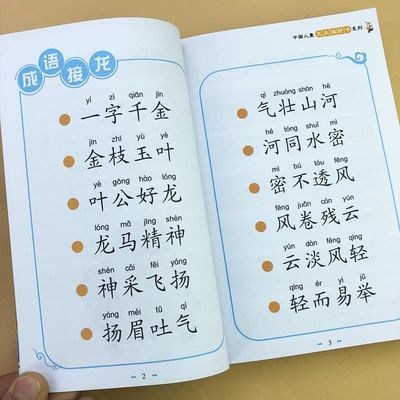 成语接龙
yí zì qiān jīn
一字千金
jīn zhī yù yè
金枝玉叶
yè gōng hào lóng
叶公好龙
lóng mǎ jīng shén
龙马精神
shén cǎi fēi yáng
神采飞扬
yáng méi tǔ qì
扬眉吐气
2
中国儿童天天读好书系列
qì zhuàng shān hé
气壮山河
hé tóng shuǐ mì
河同水密
mì bù tòu fēng
密不透风
fēng juǎn cán yún
风卷残云
yún dàn fēng qīng
云淡风轻
qīng ér yì jǔ
轻而易举
3